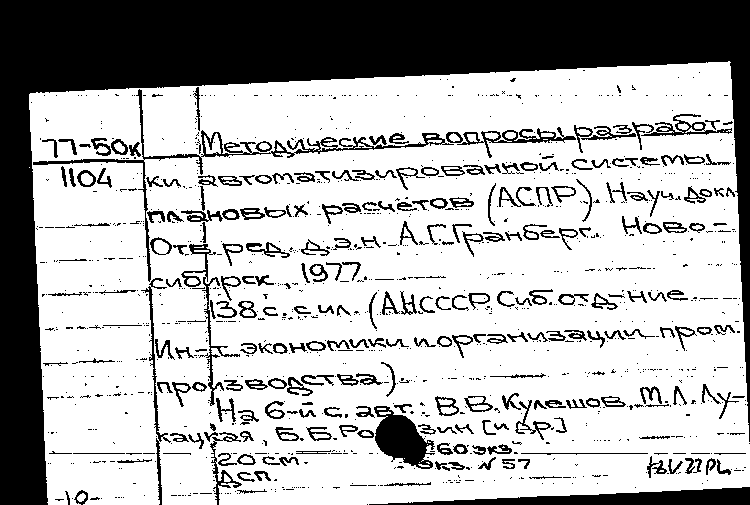 77-50к Методические вопросы разработ-
1104 ки автоматизированной системы
плановых расчетов (АСПР). Науч. докл.
Отв. ред. д.э.н. А.Г. Гранберг. Ново-
сибирск, 1977.
138 с. с ил. (АН СССР. Сиб. отд-ние.
Ин-т экономики и организации пром.
производства).
На 6-й с. авт.: В.В. Кулешов, М.Л. Лу-
кацкая, Б.Б. Ро зин [и др.]
20 см. 160 экз.
ДСП. Экз. № 57
-10-